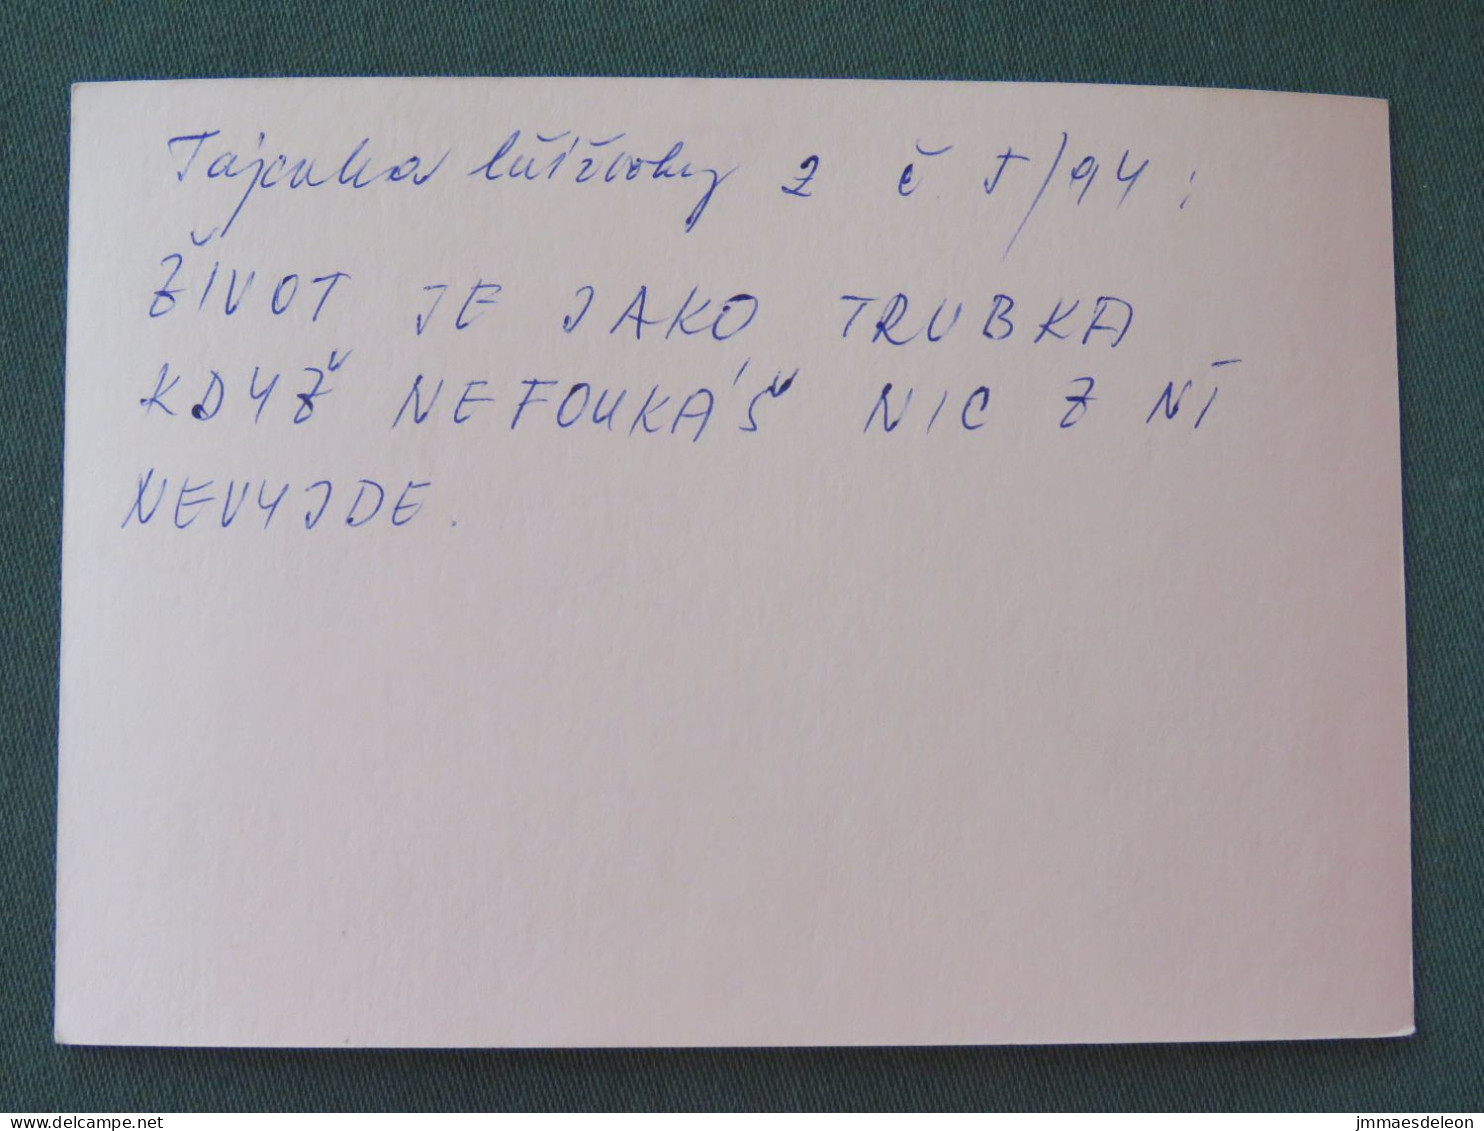 Tajenka luštěnky z č 5/94:
ŽIVOT JE JAKO TRUBKA
KDYŽ NEFOUKÁŠ NIC Z NÍ
NEVYJDE.
jmmaesdeleon
www.delcampe.net